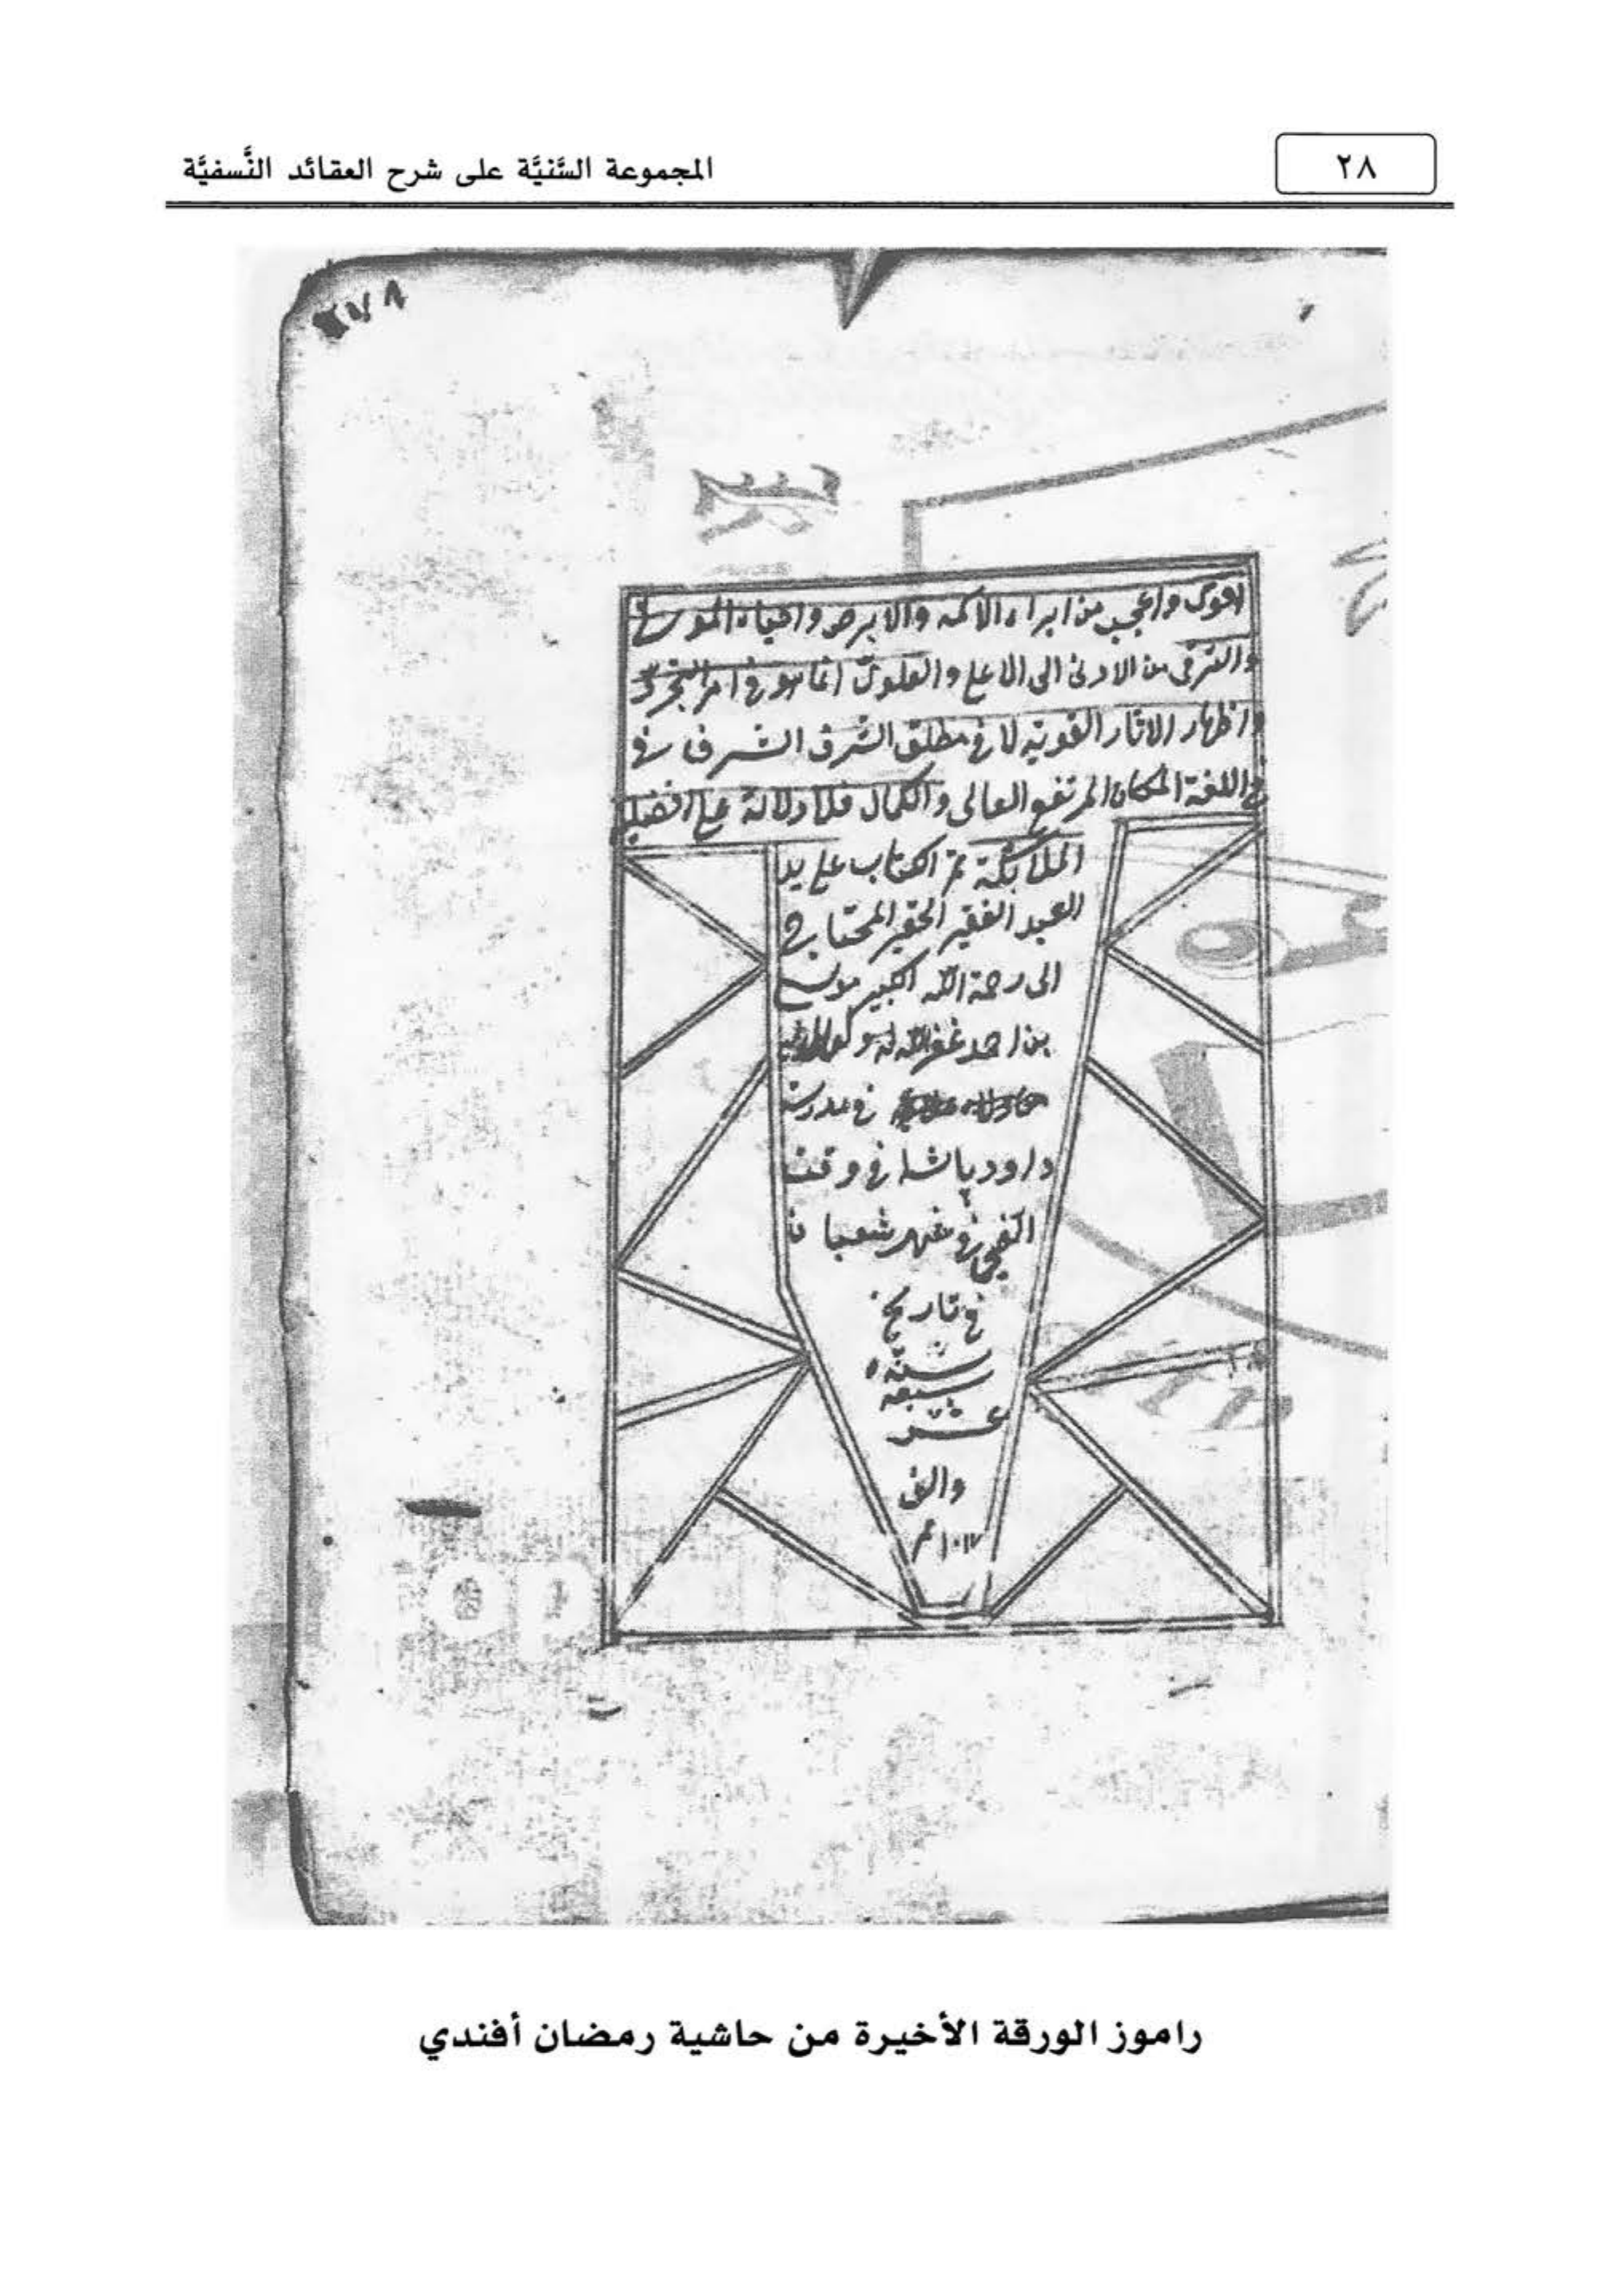 ٢٨
المجموعة السَّنيَّة على شرح العقائد النَّسفيَّة
اقوى واعجب من ابراء الاكمه والابرص واحياء الموتى
والترقى من الادنى الى الاعلى والعلو انما هو فى امر التجرد
واظهار الاثار القوية لا فى مطلق الشرف الشرف فى
اللغة المكان المرتفع العالى والكمال فلا دلالة على افضلية
الملائكة تم الكتاب على يد
العبد الفقير الحقير المحتاج
الى رحمة الله الكبير
بن احمد غفر الله له
فى مدرسة
داود پاشا فى وقت
فى شهر شعبان
فى تاريخ
سنة
سبعة
عشر
والف
١٠١٧
راموز الورقة الأخيرة من حاشية رمضان أفندي